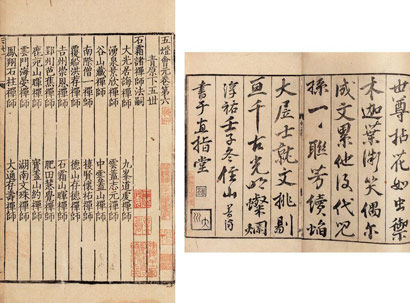 五燈會元卷第六
青原下五世
石霜諸禪師法嗣
大光居誨禪師
九峯道虔禪師
湧泉景欣禪師
雲蓋志元禪師
谷山藏禪師
中雲蓋禪師
南際僧一禪師
棲賢懷祐禪師
覆船洪存禪師
德山存德禪師
吉州崇恩禪師
石霜暉禪師
郢州芭蕉禪師
肥田慧覺禪師
鹿苑暉禪師
寶蓋約禪師
雲門海晏禪師
湖南文殊禪師
鳳翔石柱禪師
大通存壽禪師
世尊拈花如虫禦
木迦葉微笑偶尔
成文累他後代兒
孫一一聯芳續焰
大居士就文挑剔
亘千古光明燦爛
淳祐壬子冬住山
書于直指堂